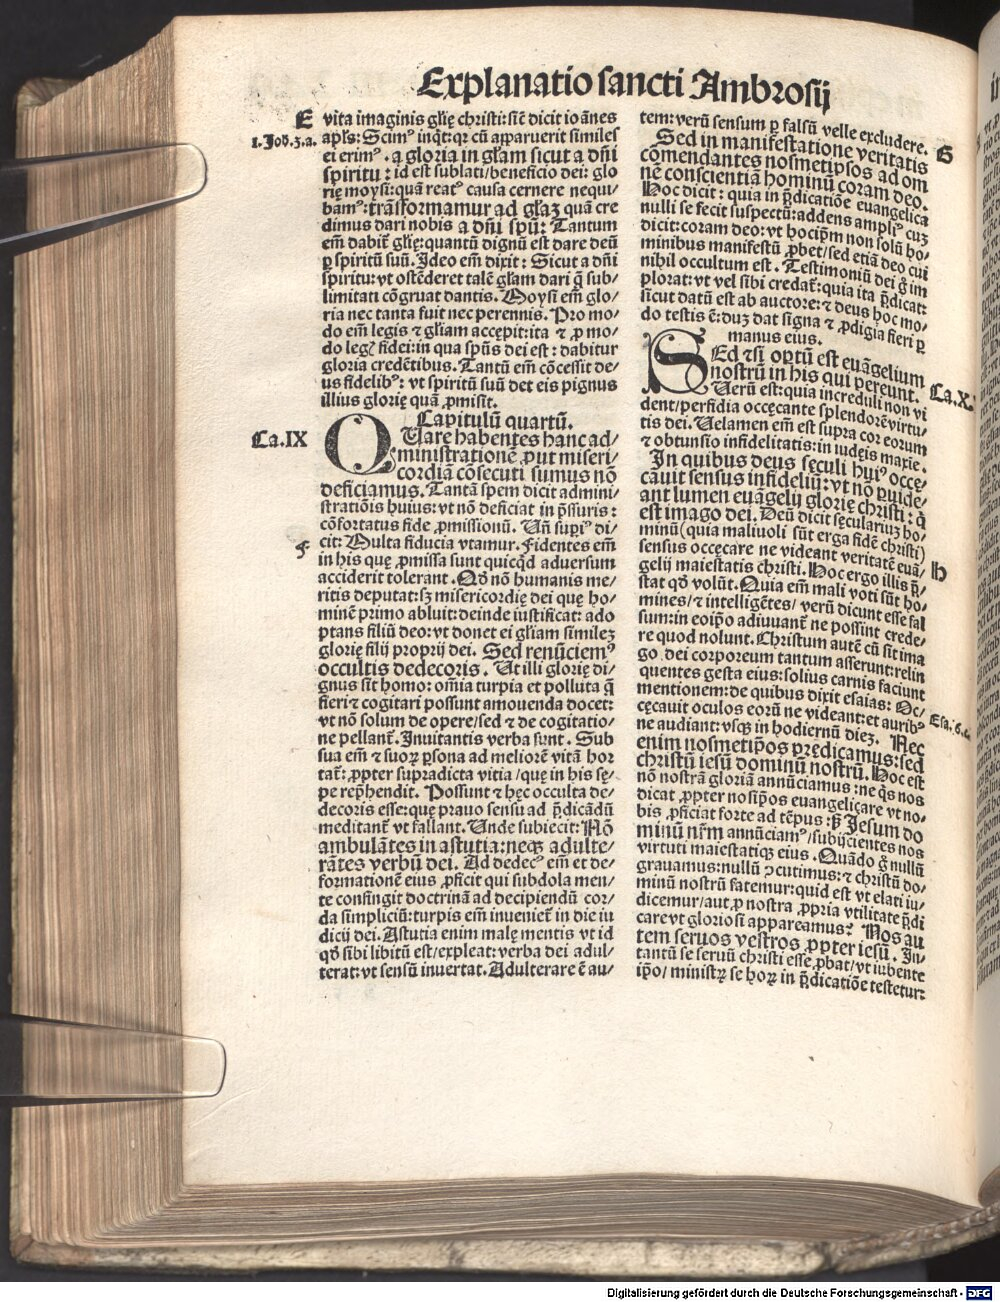 Explanatio sancti Ambrosij
E
1. Joh. 3. a.
vita imaginis glię christi: sic̄ dicit ioānes
apl̄s: Scim⁹ inqt: qꝛ cū apparuerit similes
ei erim⁹. a gloria in glam sicut a dn̄i
spiritu: id est sublati/beneficio dei: glo/
rię moysi: quā reat⁹ causa cernere nequi/
bam⁹: trāsformamur ad glaꝫ quā cre
dimus dari nobis a dn̄i spū: Tantum
em̄ dabit̄ glię: quantū dignū est dare deū
ꝑ spiritū suū. Ideo em̄ dixit: Sicut a dn̄i
spiritu: vt ostēderet talē glam dari q̄ sub/
limitati cōgruat dantis. Moysi em̄ glo/
ria nec tanta fuit nec perennis. Pro mo/
do em̄ legis ⁊ gliam accępit: ita ⁊ ꝓ mo/
do legꝭ fidei: in qua spūs dei est: dabitur
gloria credētibus. Tantū em̄ cōcessit de/
us fidelib⁹: vt spiritū suū det eis pignus
illius glorię quā ꝓmisit.
Capitulū quartū.
Ca. IX
QUare habentes hanc ad/
ministrationē ꝓut miseri/
cordiā cōsecuti sumus nō
deficiamus. Tantā spem dicit admini/
strationis huius: vt nō deficiat in p̄ssuris:
cōfortatus fide ꝓmissionū. Un̄ supi⁹ di/
F
cit: Multa fiducia vtamur. Fidentes em̄
in his quę ꝓmissa sunt quicqd adversum
acciderit tolerant. Qd nō humanis me/
ritis deputat: sꝫ misericordię dei quę ho/
minē primo abluit: deinde iustificat: ado
ptans filiū deo: vt donet ei gliam simileꝫ
glorię filij proprij dei. Sed renūciem⁹
occultis dedecoris. Ut illi glorię di/
gnus sit homo: omīa turpia et polluta q̄
fieri ⁊ cogitari possunt amouenda docet:
vt nō solum de opere/sed ⁊ de cogitatio/
ne pellant̄. Inuitantis verba sunt. Sub
sua em̄ ⁊ suoꝝ ꝑsona ad meliorē vitā hor
tat̄: ꝓpter supradicta vitia/quę in his sę/
pe rep̄hendit. Possunt ⁊ hęc occulta de/
decoris esse: que prauo sensu ad p̄dicādū
meditant̄ vt fallant. Unde subiecit: Nō
ambulātes in astutia: neqꝫ adulte/
rātes verbū dei. Ad dedec⁹ em̄ et de/
formationē eius ꝓficit qui subdola men/
te confingit doctrinā ad decipiendū cor/
da simpliciū: turpis em̄ inueniet̄ in die iu
dicij dei. Astutia enim malę mentis vt id
qd sibi libitū est/expleat: verba dei adul/
terat: vt sensū invertat. Adulterare ē au/
tem: verū sensum ꝑ falsū velle excludere.
G
Sed in manifestatione veritatis
cōmendantes nosmetipsos ad om
nē conscientiā hominū coram deo.
Hoc dicit: quia in p̄dicatiōe euangelica
nulli se fecit suspectū: addens ampli⁹ cuꝫ
dicit: coram deo: vt hocip̄m non solū ho/
minibus manifestū ꝓbet/sed etiā deo cui
nihil occultum est. Testimoniū dei g̊ im
plorat: vt vel sibi credat̄: quia ita p̄dicat:
sicut datū est ab auctore: ⁊ deus hoc mo/
do testis ē: duꝫ dat signa ⁊ ꝓdigia fieri ꝑ
manus eius.
Ca. X.
SEd ⁊ si optū est euāgelium
nostrū in his qui pereunt.
Uerū est: quia increduli non vi
dent/perfidia occęcante splendorē virtu/
tis dei. Uelamen em̄ est supra cor eorum
⁊ obtunsio infidelitatis: in iudęis maxīe.
In quibus deus sęculi hui⁹ occę/
cauit sensus infideliū: vt nō ꝑuide/
ant lumen euāgelij glorię christi: q̄
est imago dei. Deū dicit sęculariuꝫ ho/
minū (quia maliuoli sūt erga fidē christi)
sensus occęcare ne videant veritatē euā/
H
gelij maiestatis christi. Hoc ergo illis p̄/
stat qd volūt. Quia em̄ mali voti sūt ho/
mines/⁊ intelligētes/verū dicunt esse fal
sum: in eoip̄o adiuuant̄ ne possint crede/
re quod nolunt. Christum autē cū sit ima
go dei corporeum tantum asserunt: relin
quentes gesta eius: solius carnis faciunt
mentionem: de quibus dixit esaias: Oc/
Esa. 6. c.
cęcauit oculos eorū ne videant: et aurib⁹
ne audiant: vsqꝫ in hodiernū dieꝫ. Nec
enim nosmetip̄os prędicamus: sed
christū iesū dominū nostrū. Hoc est
nō nostrā gloriā annūciamus: ne q̄s nos
dicat ꝓpter nosip̄os euangelicare vt no/
bis ꝓficiat forte ad tēpus: sꝫ Jesum do
minū nr̄m annūciam⁹/subijcientes nos
virtuti maiestatisqꝫ eius. Quādo g̊ nullū
grauamus: nullū ↄcutimus: ⁊ christū do/
minū nostrū fatemur: quid est vt elati iu/
dicemur/aut ꝑ nostra ꝓpria vtilitate p̄di
care vt gloriosi appareamus? Nos au
tem seruos vestros ꝓpter iesū. In/
tantū se seruū christi esse ꝓbat/vt iubente
ip̄o/ministrꝝ se hoꝝ in p̄dicatiōe testetur:
Digitalisierung gefördert durch die Deutsche Forschungsgemeinschaft - DFG